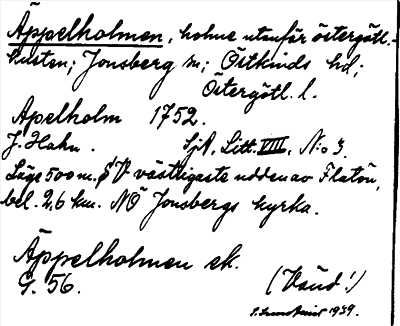 Äppelholmen, holme utanför östergötl.-
kusten; Jonsberg sn; Östkinds hd;
Östergötl. l.
Apelholm 1752.
J. Hahn. SjA. Litt. VIII. N:o 3.
Läge 500 m. SV västligaste udden av Flatön,
bel. 2,6 km. NÖ Jonsbergs kyrka.
Äppelholmen ek.
G. 56. (Vänd!)
1939.